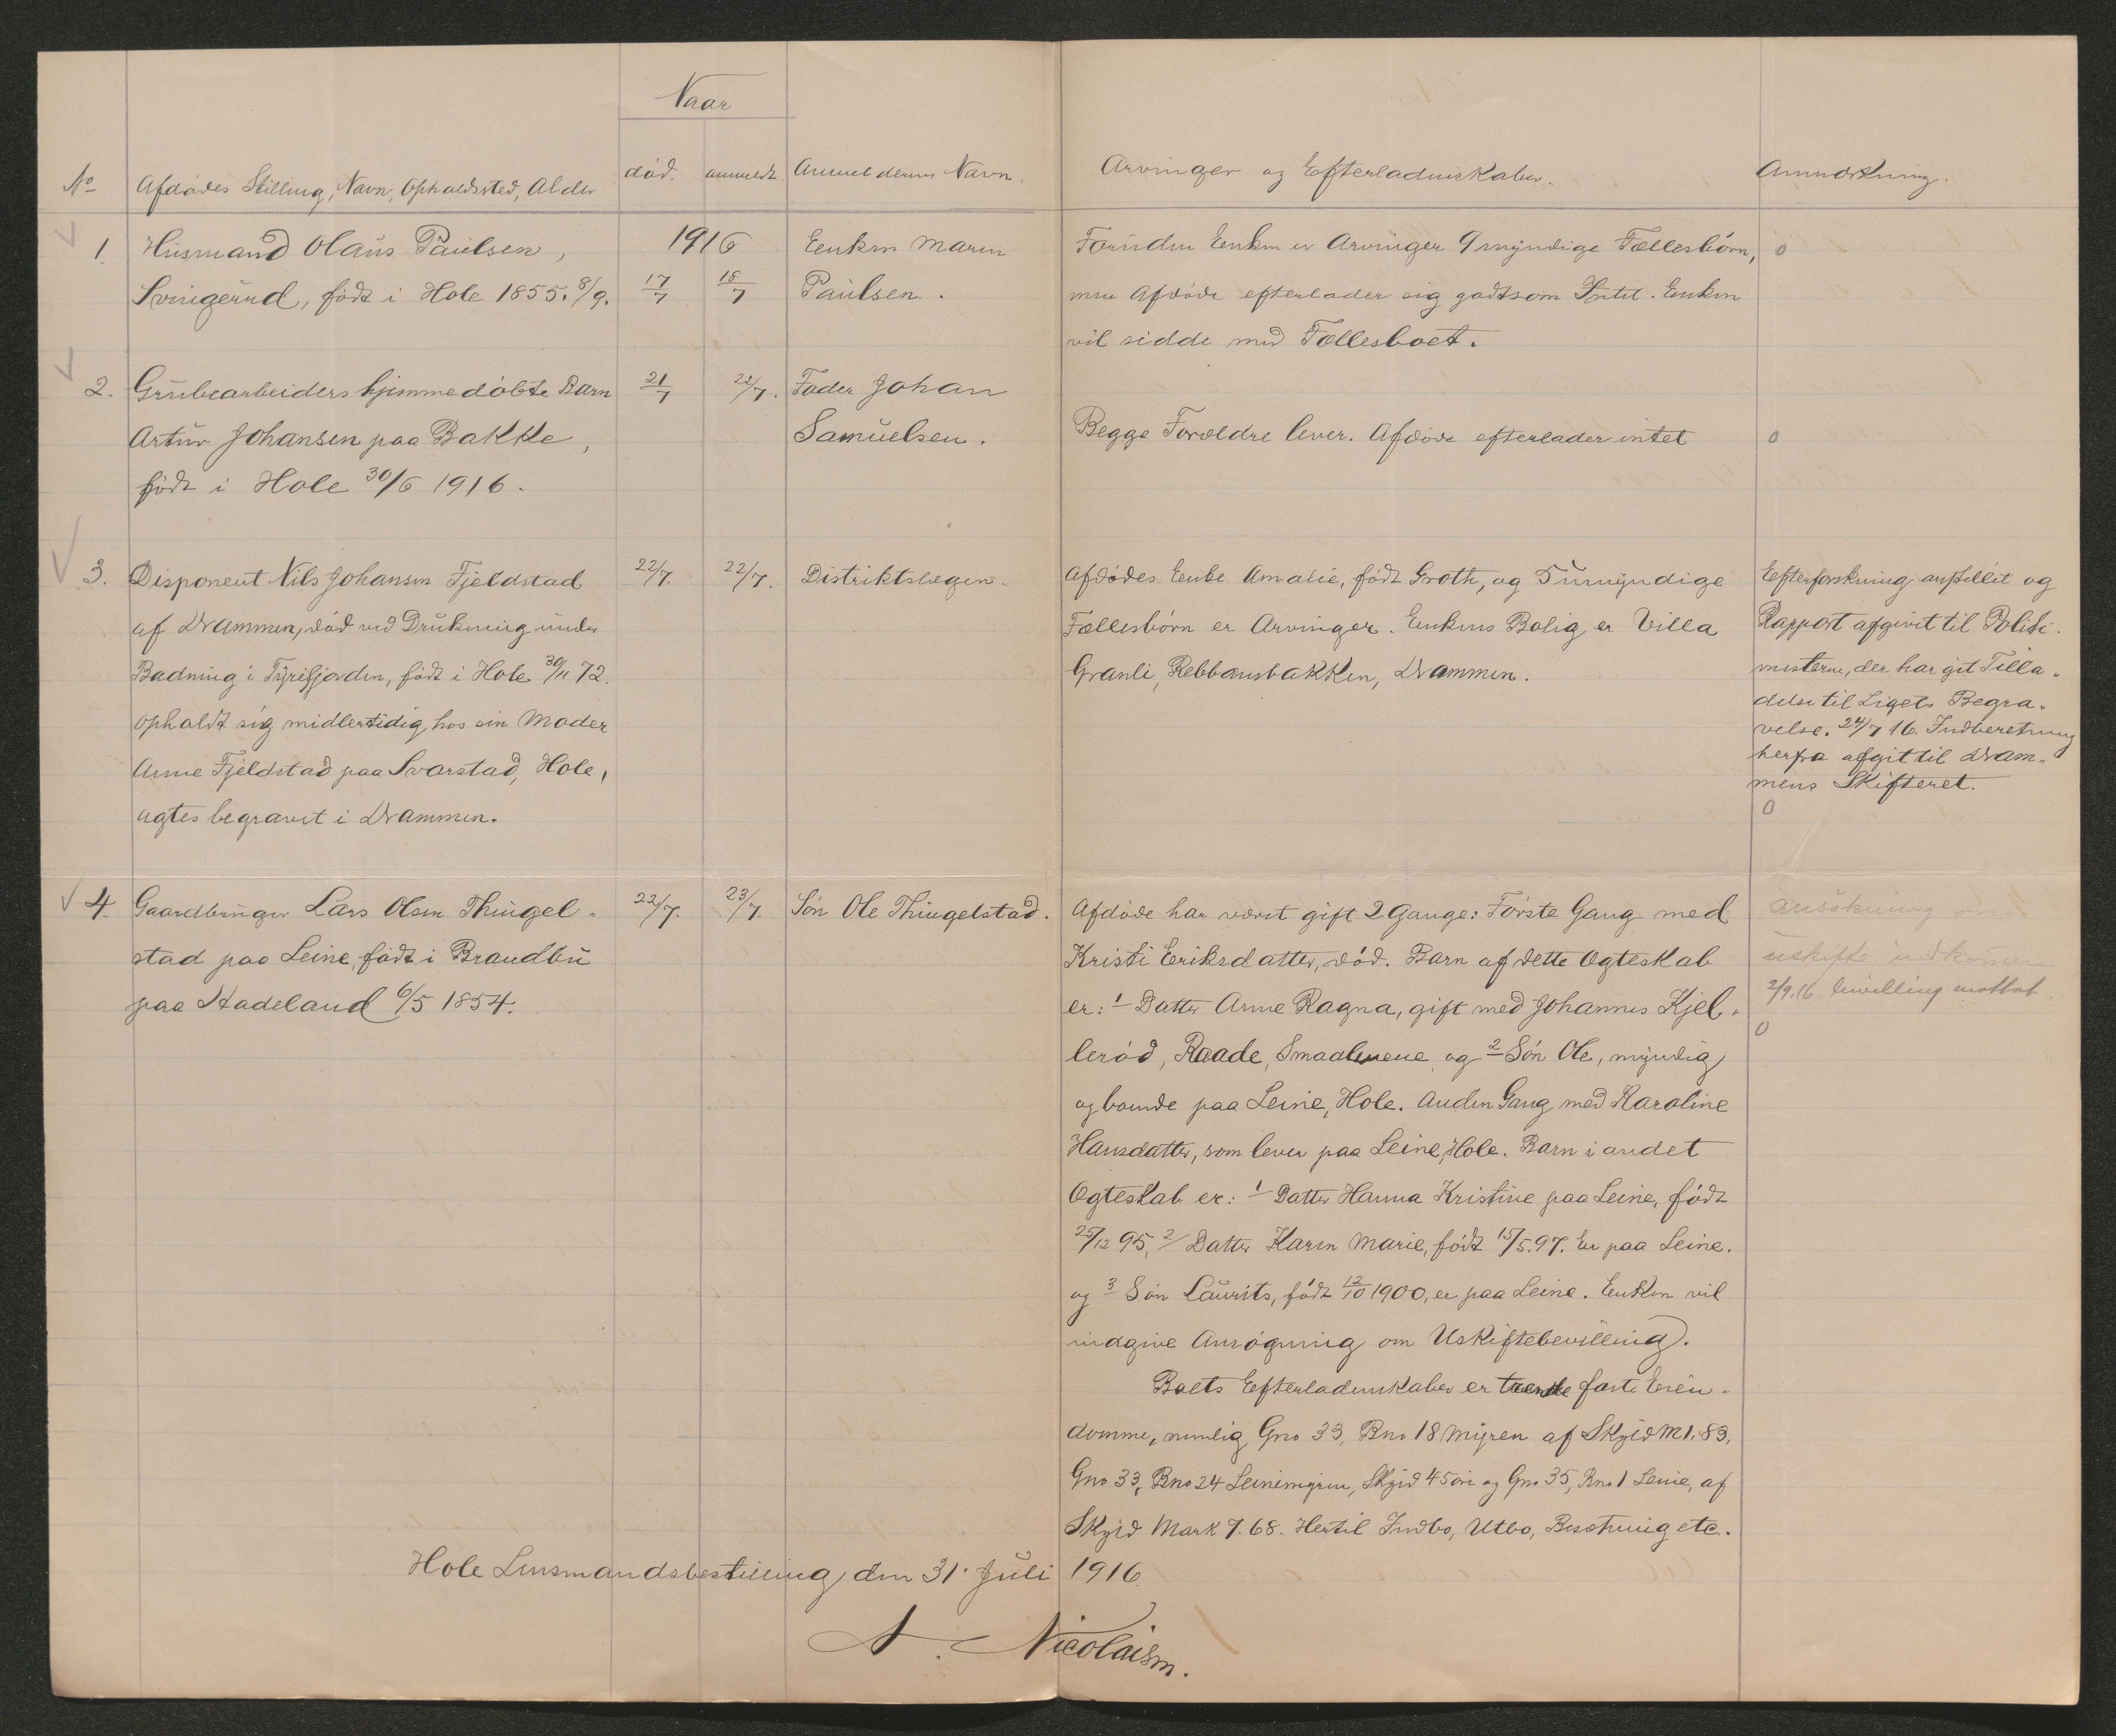 Naar
No Afdødes Stilling, Navn, Opholdssted, Alder. død. anmeldt. Anmelderens Navn. Arvinger og Efterladenskaber. Anmærkning.
1. Husmand Olaus Paulsen,
Svingerud, født i Hole 1855. 8/9.
1916
17/7 18/7
Enken Maren
Paulsen.
Foruden Enken er Arvinger 9 myndige Fællesbørn,
men Afdøde efterlader sig godtsom Intet. Enken
vil sidde med Fællesboet.
0
2. Grubearbeiders hjemmedøbte Barn
Artur Johansen paa Bakke,
født i Hole 30/6 1916.
21/7 21/7.
Fader Johan
Samuelsen.
Begge Forældre lever. Afdøde efterlader intet
0
3. Disponent Nils Johansen Fjeldstad
af Drammen, død ved Drukning under
Badning i Tyrifjorden, født i Hole 30/11 72.
opholdt sig midlertidig hos sin Moder
Anne Fjeldstad paa Svarstad, Hole,
agtes begravet i Drammen.
22/7. 22/7.
Distriktslægen.
Afdødes Enke Amalie, født Groth, og 5 umyndige
Fællesbørn er Arvinger. Enkens Bolig er Villa
Granli, Rebbansbakken, Drammen.
Efterforskning anstillet og
Rapport afgivet til Politi-
mesteren, der har git Tilla-
delse til Ligets Begra-
velse. 24/7 16. Indberetning
herfra afgit til Dram-
mens Skifteret.
0
4. Gaardbruger Lars Olsen Thingel-
stad paa Leine, født i Brandbu
paa Hadeland 6/5 1854.
22/7. 23/7.
Søn Ole Thingelstad.
Afdøde har været gift 2 Gange: Første Gang med
Kristi Eriksdatter, død. Barn af dette Ægteskab
er: 1 Datter Anne Ragna, gift med Johannes Kjel-
lerød, Raade, Smaalenene og 2 Søn Ole, myndig
og boende paa Leine, Hole. Anden Gang med Karoline
Hansdatter, som lever paa Leine, Hole. Barn i andet
Ægteskab er: 1 Datter Hanna Kristine paa Leine, født
25/12 95, 2/ Datter Karen Marie, født 15/5. 97. Er paa Leine.
og 3 Søn Laurits, født 12/10 1900, er paa Leine. Enken vil
indgive Ansøgning om Uskiftebevilling.
Boets Efterladenskaber er trende faste Eien-
domme, nemlig Gno 33, Bno 18 Myren af Skyld M 1.83,
Gno 33, Bno 24 Leinemyren, Skyld 45 øre og Gno 35, Bno 1 Leine, af
Skyld Mark 7.68. Hertil Indbo, Utbo, Besætning etc.
ansökning om
uskifte indkommen
2/9.16. bevilling mottat
0
Hole Lensmandsbestilling, den 31. Juli 1916
A. Nicolaisen.